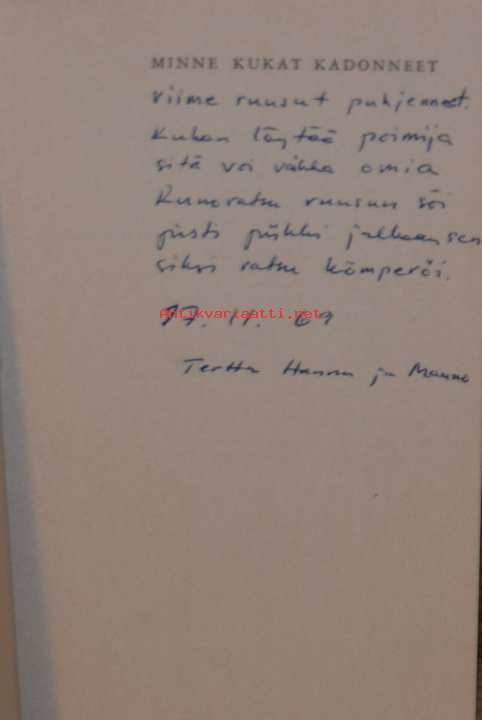 MINNE KUKAT KADONNEET
viime ruusut puhjenneet.
Kuhan löytää poimija
sitä voi vähka omia
Runoratsu ruusun söi
pisti piikki jalkaansen
siksi ratsu kömperöi.
Antikvariaatti.net
17. 11. 69
Terttu Hannu ja Mauno